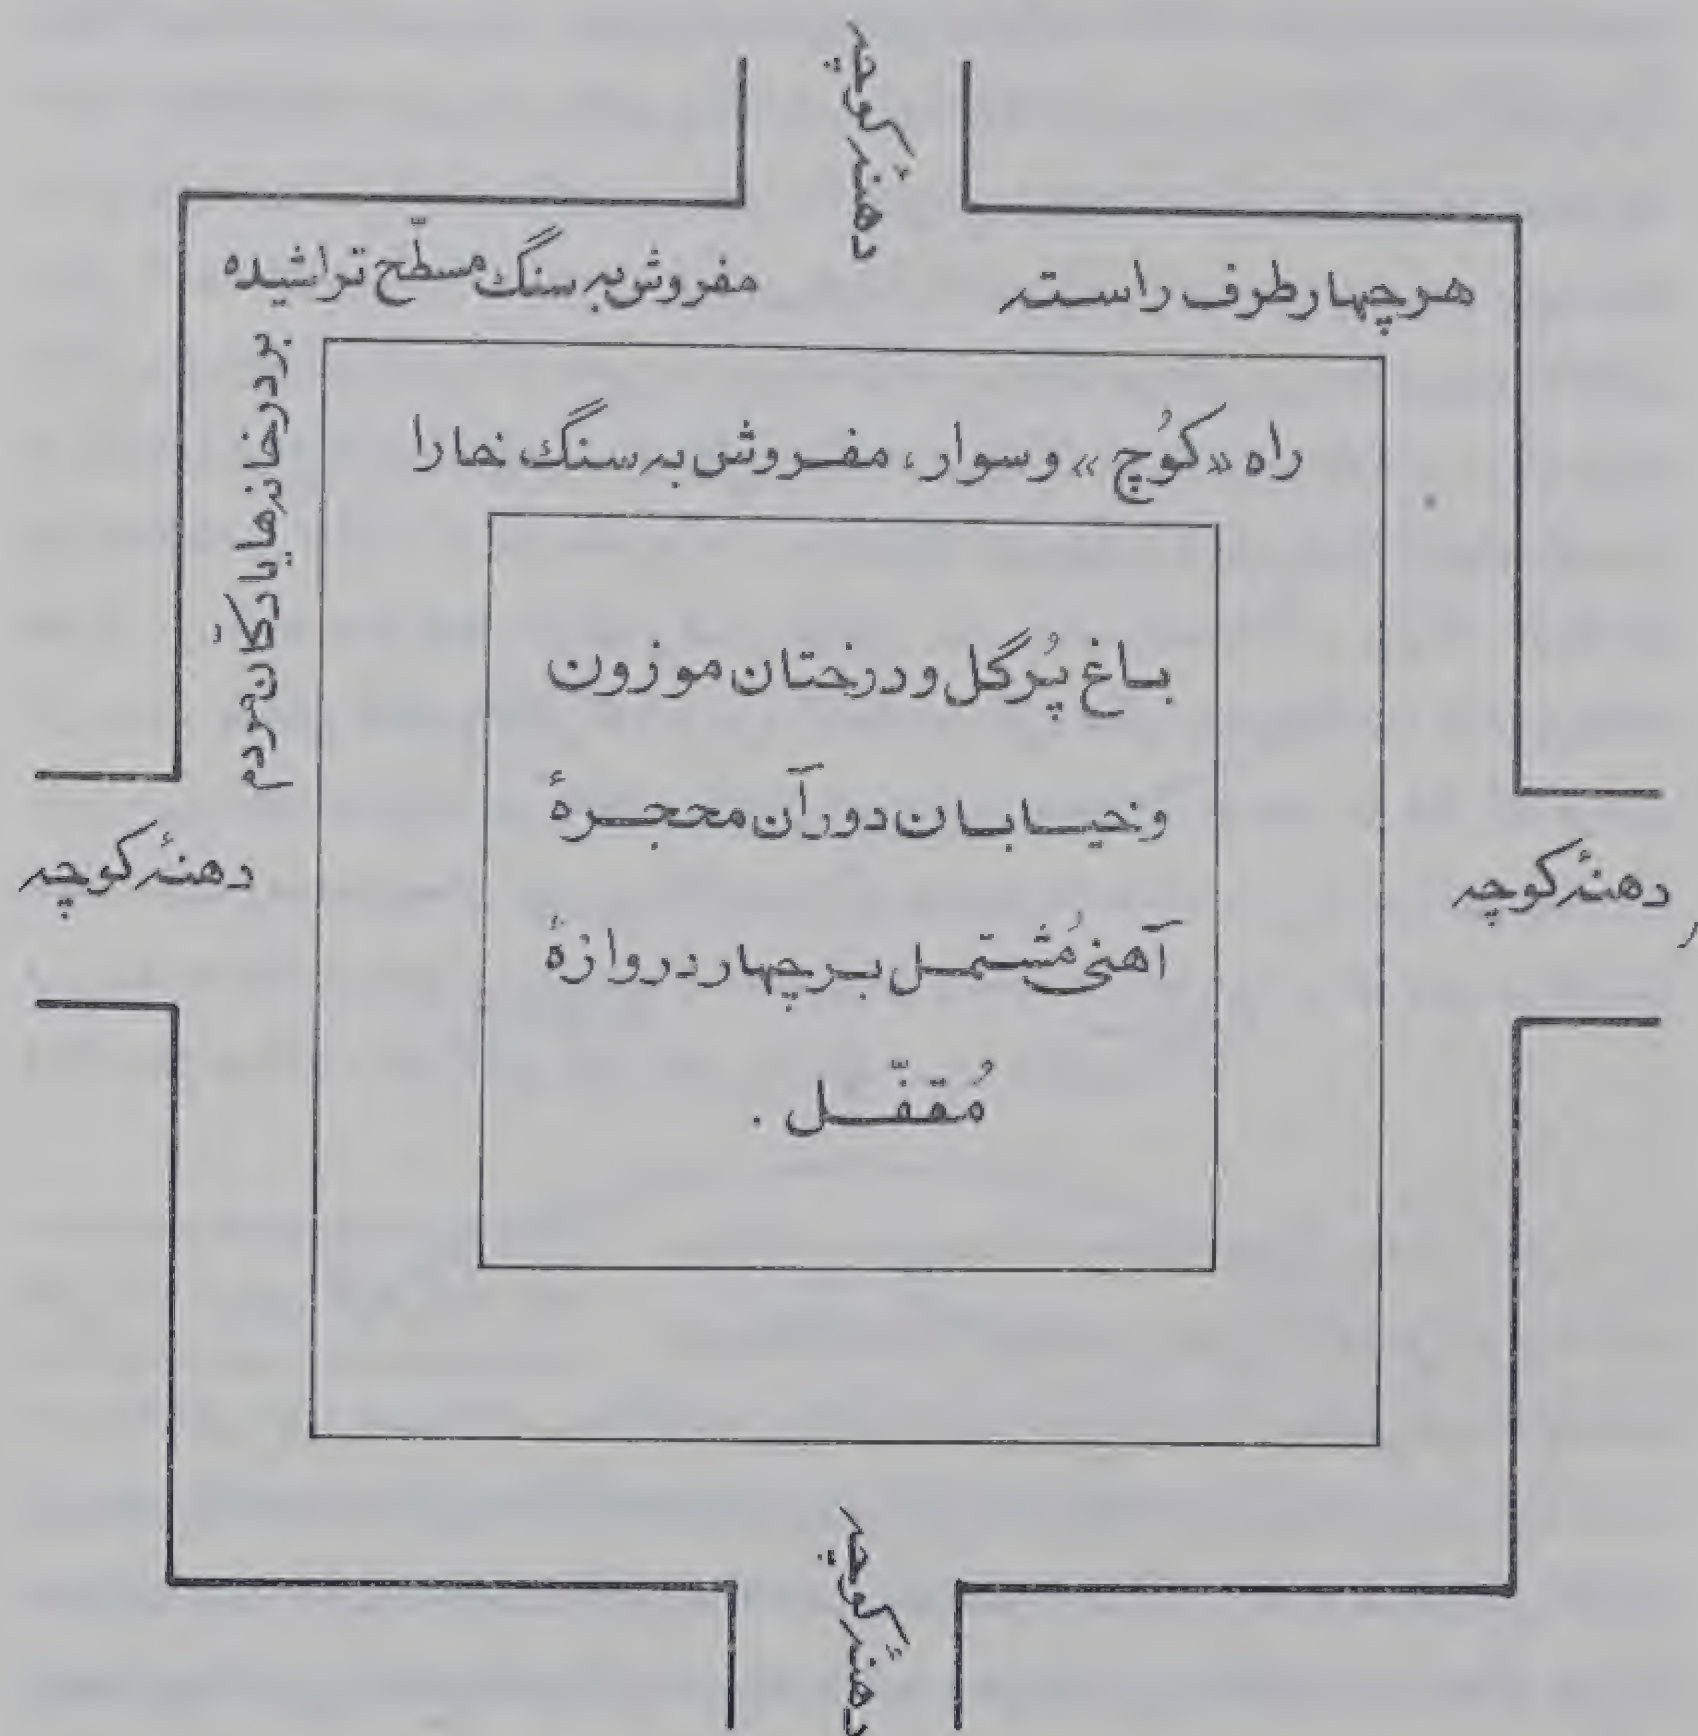 دهنهٔ کوچه
هر چهار طرف راسته
مفروش به سنگ مسطّح تراشیده
بر در خانه‌ها یا دکّان مردم
راه «کوُچ» و سوار، مفروش به سنگ خارا
باغ پُرگل و درختان موزون
و خیابان دور آن محجرهٔ
آهنی مُشتمل بر چهار دروازهٔ
مُقفّل .
دهنهٔ کوچه
دهنهٔ کوچه
دهنهٔ کوچه